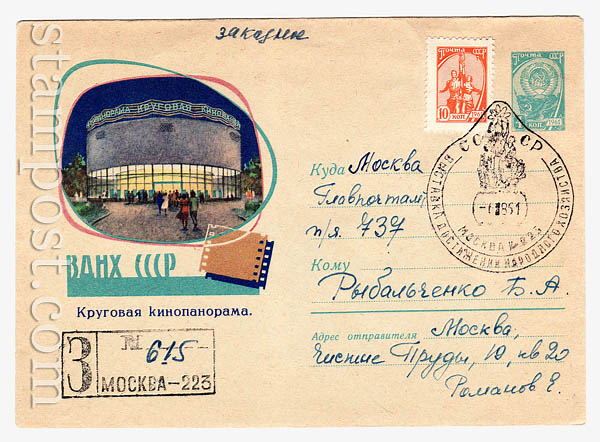 заказное
ПОЧТА СССР
10 КОП
1961
ПОЧТА СССР
4 КОП. 1961
ПАНОРАМА КРУГОВАЯ КИНОПАНО
ВДНХ СССР
Круговая кинопанорама.
З
№ 615
МОСКВА-223
СССР
ВЫСТАВКА ДОСТИЖЕНИЙ НАРОДНОГО ХОЗЯЙСТВА
МОСКВА И-223
Куда Москва
Главпочтамт
п/я. 737
Кому
Рыбальченко Б. А.
Адрес отправителя Москва,
Чистые Пруды, 10, кв 20
Романов Е.
stampost.com